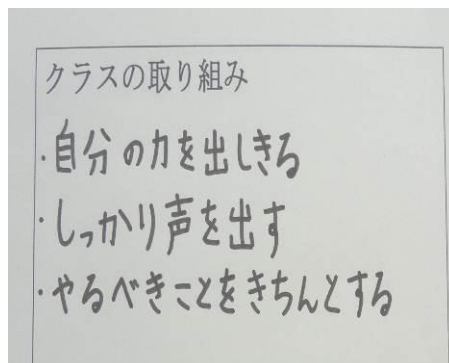 クラスの取り組み
・自分の力を出しきる
・しっかり声を出す
・やるべきことをきちんとする